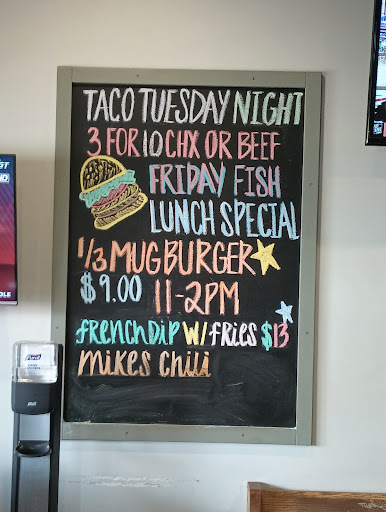 TACO TUESDAY NIGHT
3 FOR 10 CHX OR BEEF
FRIDAY FISH
LUNCH SPECIAL
1/3 MUG BURGER
$9.00 11-2PM
FRENCH DIP W/ FRIES $13
MIKES CHILI
PURELL